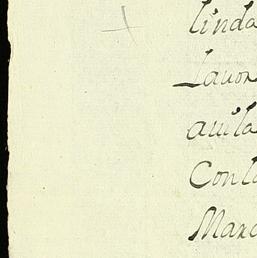 linda
Lauor
auila
Conta
Marc